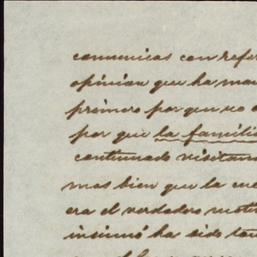 comunicas con refer
opinion que ha man
primero por que no
por que la familia
continuado visitan
mas bien que la cue
era el verdadero moti
insinuó ha sido tan